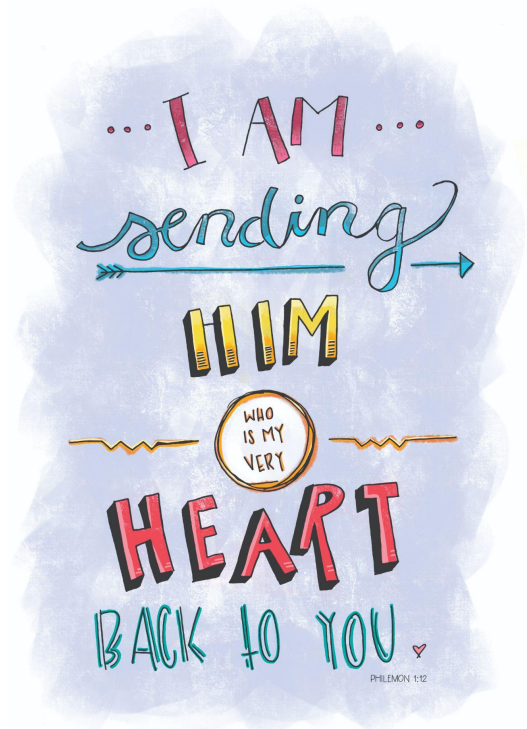 ... I AM ...
sending
HIM
WHO
IS MY
VERY
HEART
BACK TO YOU.
PHILEMON 1:12